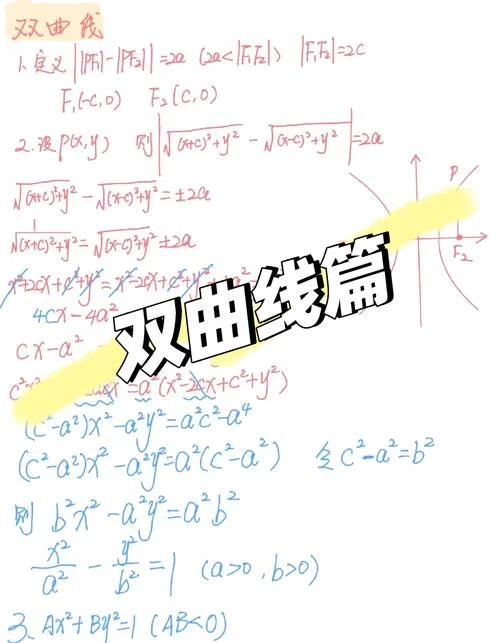 双曲线
1.定义 ||PF₁|-|PF₂||=2a (2a<|F₁F₂|) |F₁F₂|=2c
F₁(-c,0) F₂(c,0)
2.设P(x,y) 则|√((x+c)²+y²) - √((x-c)²+y²)|=2a
√((x+c)²+y²) - √((x-c)²+y²) = ±2a
√((x+c)²+y²) = √((x-c)²+y²) ±2a
P
F₂
x²+2cx+c²+y² = x²-2cx+c²+y²
4cx-4a²
cx-a²
双曲线篇
=a²(x²-2cx+c²+y²)
(c²-a²)x²-a²y²=a²c²-a⁴
(c²-a²)x²-a²y²=a²(c²-a²) 令c²-a²=b²
则 b²x²-a²y²=a²b²
x²/a² - y²/b² = 1 (a>0,b>0)
3. Ax²+By²=1 (AB<0)